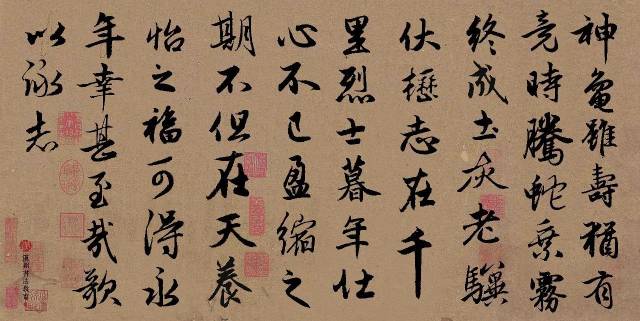 神龜雖壽猶有
竟時騰蛇乗霧
終成土灰老驥
伏櫪志在千
里烈士暮年壮
心不已盈縮之
期不但在天養
怡之福可得永
年幸甚至哉歌
以詠志